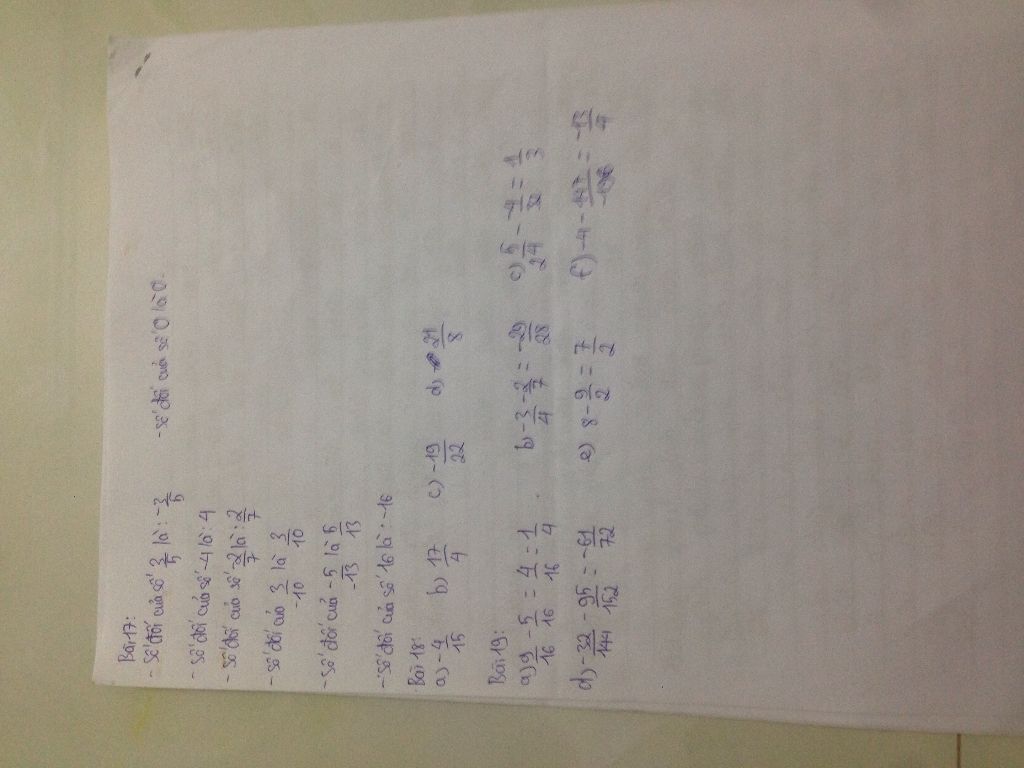 Bài 17:
- Số đối của số 3/5 là: -3/5 - số đối của số 0 là 0.
- Số đối của số -4 là: 4
- Số đối của số -2/7 là: 2/7
- số đối của 3/-10 là 3/10
- Số đối của -5/-13 là 5/13
- số đối của số 16 là: -16
Bài 18:
a) -4/15 b) 17/4 c) -19/22 d) -21/8
Bài 19:
a) 9/16 - 5/16 = 4/16 = 1/4 b) -3/4 - 2/7 = -29/28 c) 5/24 - -4/32 = 1/3
d) -32/144 - 95/152 = -61/72 e) 8 - 9/2 = 7/2 f) -4 - 147/-196 = -13/4